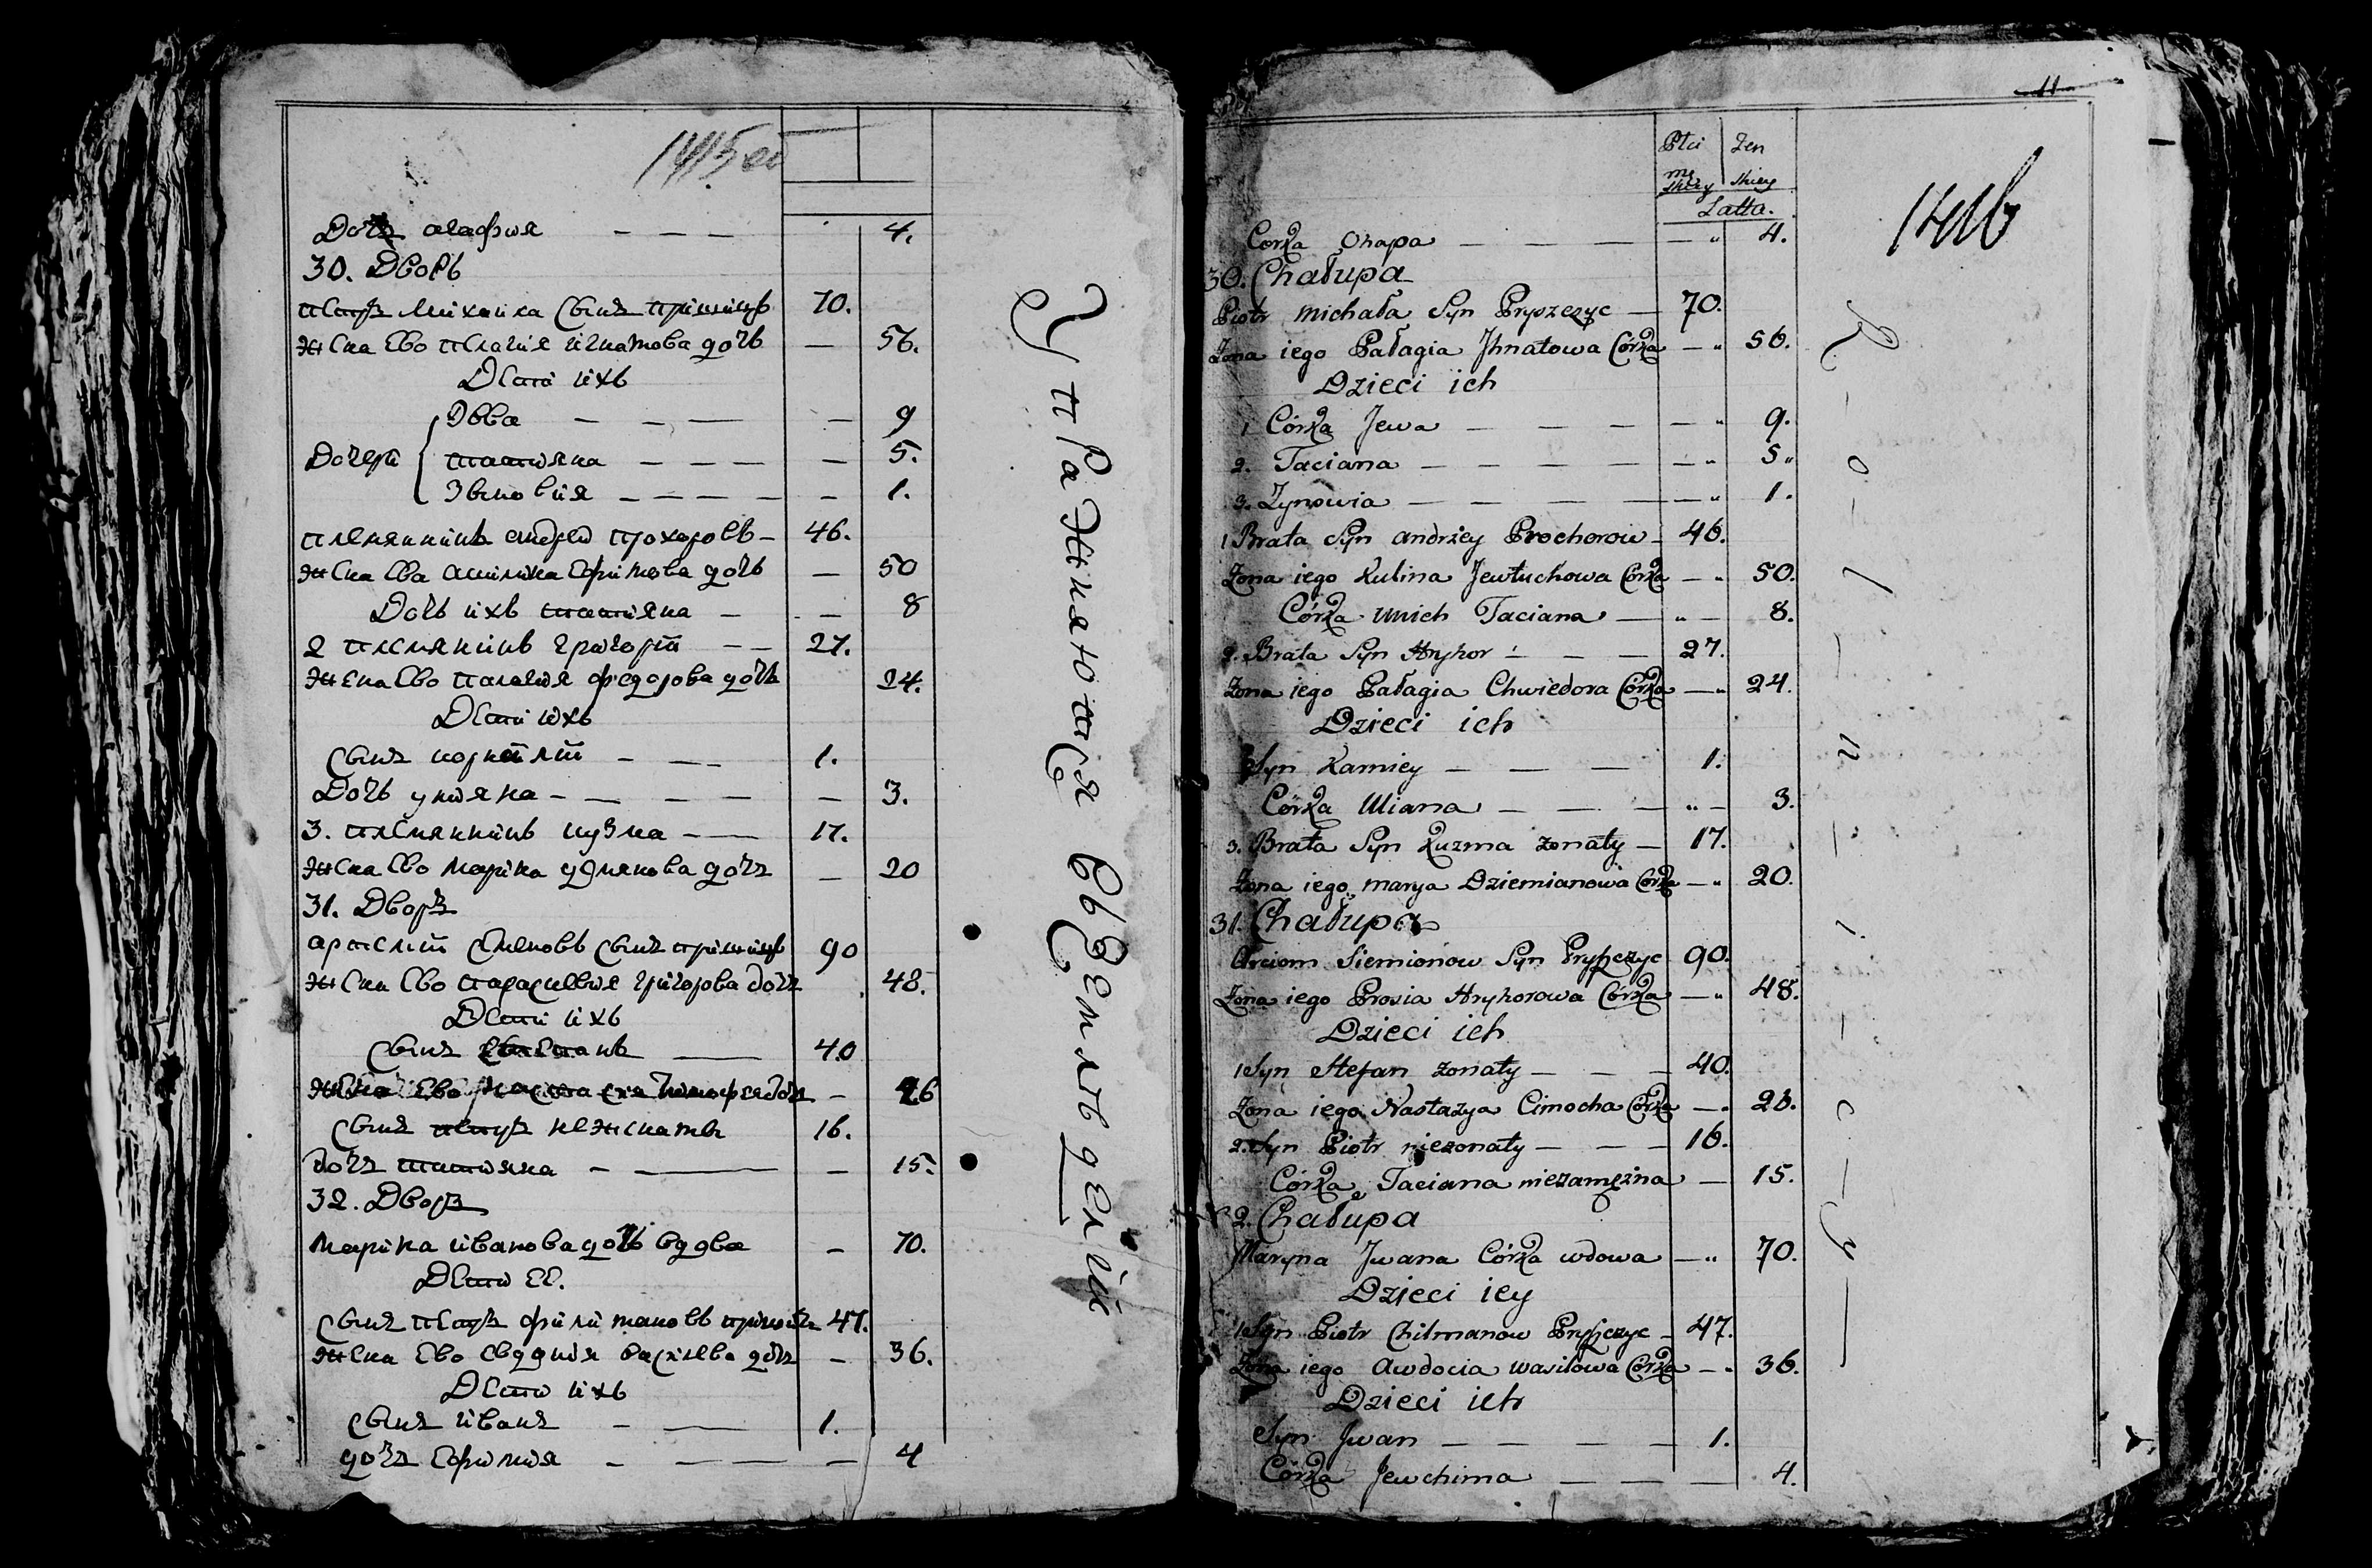 Дочь агафия — — — 4.
30. Дворъ
петръ михаила сынъ прышицъ 70.
жена ево пелагия игнатова дочь — 56.
Дети ихъ
Дочери Эвва — — — — 9
татияна — — — — 5.
Зеновия — — — — — 1.
племянникъ андрей прохоровъ — 46.
жена ева акилина ефимова дочь — 50
Дочь ихъ татияна — — 8
2 племяникъ григорий — — 27.
жена ево палагия федорова дочь 24.
Дети ихъ
сынъ корнилий — — 1.
Дочь улияна — — — — — 3.
3. племянникъ кузма — — 17.
жена ево марина — 20
31. Дворъ
семеновъ сынъ 90
жена ево параскевия григорова дочь 48.
Дети ихъ
сынъ степанъ — 40
жена ево 26
сынъ петръ нежинатъ 16.
дочь татияна — — — 15.
32. Дворъ
марина иванова дочь вдова — 70.
Дети ее.
сынъ петръ филимановъ 47.
жена ево евдокия василева дочь — 36.
Дети ихъ
сынъ иванъ — — 1.
дочь ефимия — — — — 4
Упражняются въ земледелии
11
Płci męskiey Zen skiey
Latta.
Corka Ohapa — — — — " 4.
30. Chałupa
Piotr Michała Syn Pryszczyc — 70.
Zona iego Pałagia Jhnatowa Córka — " 56.
Dzieci ich
1 Córka Jewa — — — — — " 9.
2. Taciana — — — — — " 5"
3. Zynowia — — — — — " 1.
1 Brata Syn Andrzey Prochorow — 46.
Zona iego Kulina Jewtuchowa Córka — " 50.
Córka unich Taciana — " — 8.
2. Brata Syn Hryhor — — — 27.
Zona iego Pałagia Chwiedora Córka — " 24.
Dzieci ich
Syn Karniey — — — 1.
Córka Uliana — — — " — 3.
3. Brata Syn Kuzma zonaty — 17.
Zona iego Marya Dziemianowa Córka — " 20.
31. Chałupa
Arciom Siemionow Syn Pryszczyc 90.
Zona iego Prosia Hryhorowa Córka — " 48.
Dzieci ich
1 Syn Stefan zonaty — — — 40.
Zona iego Nastazya Cimocha Córka — " 28.
2. Syn Piotr niezonaty — — — 16.
Córka Taciana niezamężna — 15.
32. Chałupa
Maryna Jwana Córka wdowa — " 70.
Dzieci iey
1 Syn Piotr Chilmanow Pryszczyc — 47.
Zona iego Awdocia Wasilowa Córka — " 36.
Dzieci ich
Syn Jwan — — — — — 1.
Córka Jewchima — — — 4.
R – o – l – n – i – c – y